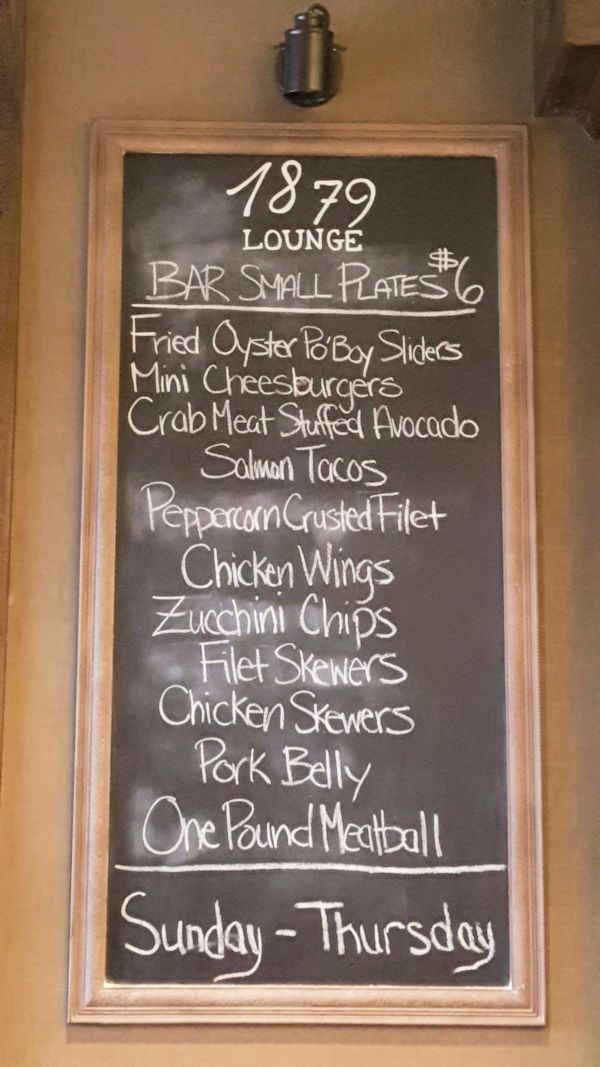 1879
LOUNGE
BAR SMALL PLATES $6
Fried Oyster Po'Boy Sliders
Mini Cheesburgers
Crab Meat Stuffed Avocado
Salmon Tacos
Peppercorn Crusted Filet
Chicken Wings
Zucchini Chips
Filet Skewers
Chicken Skewers
Pork Belly
One Pound Meatball
Sunday - Thursday